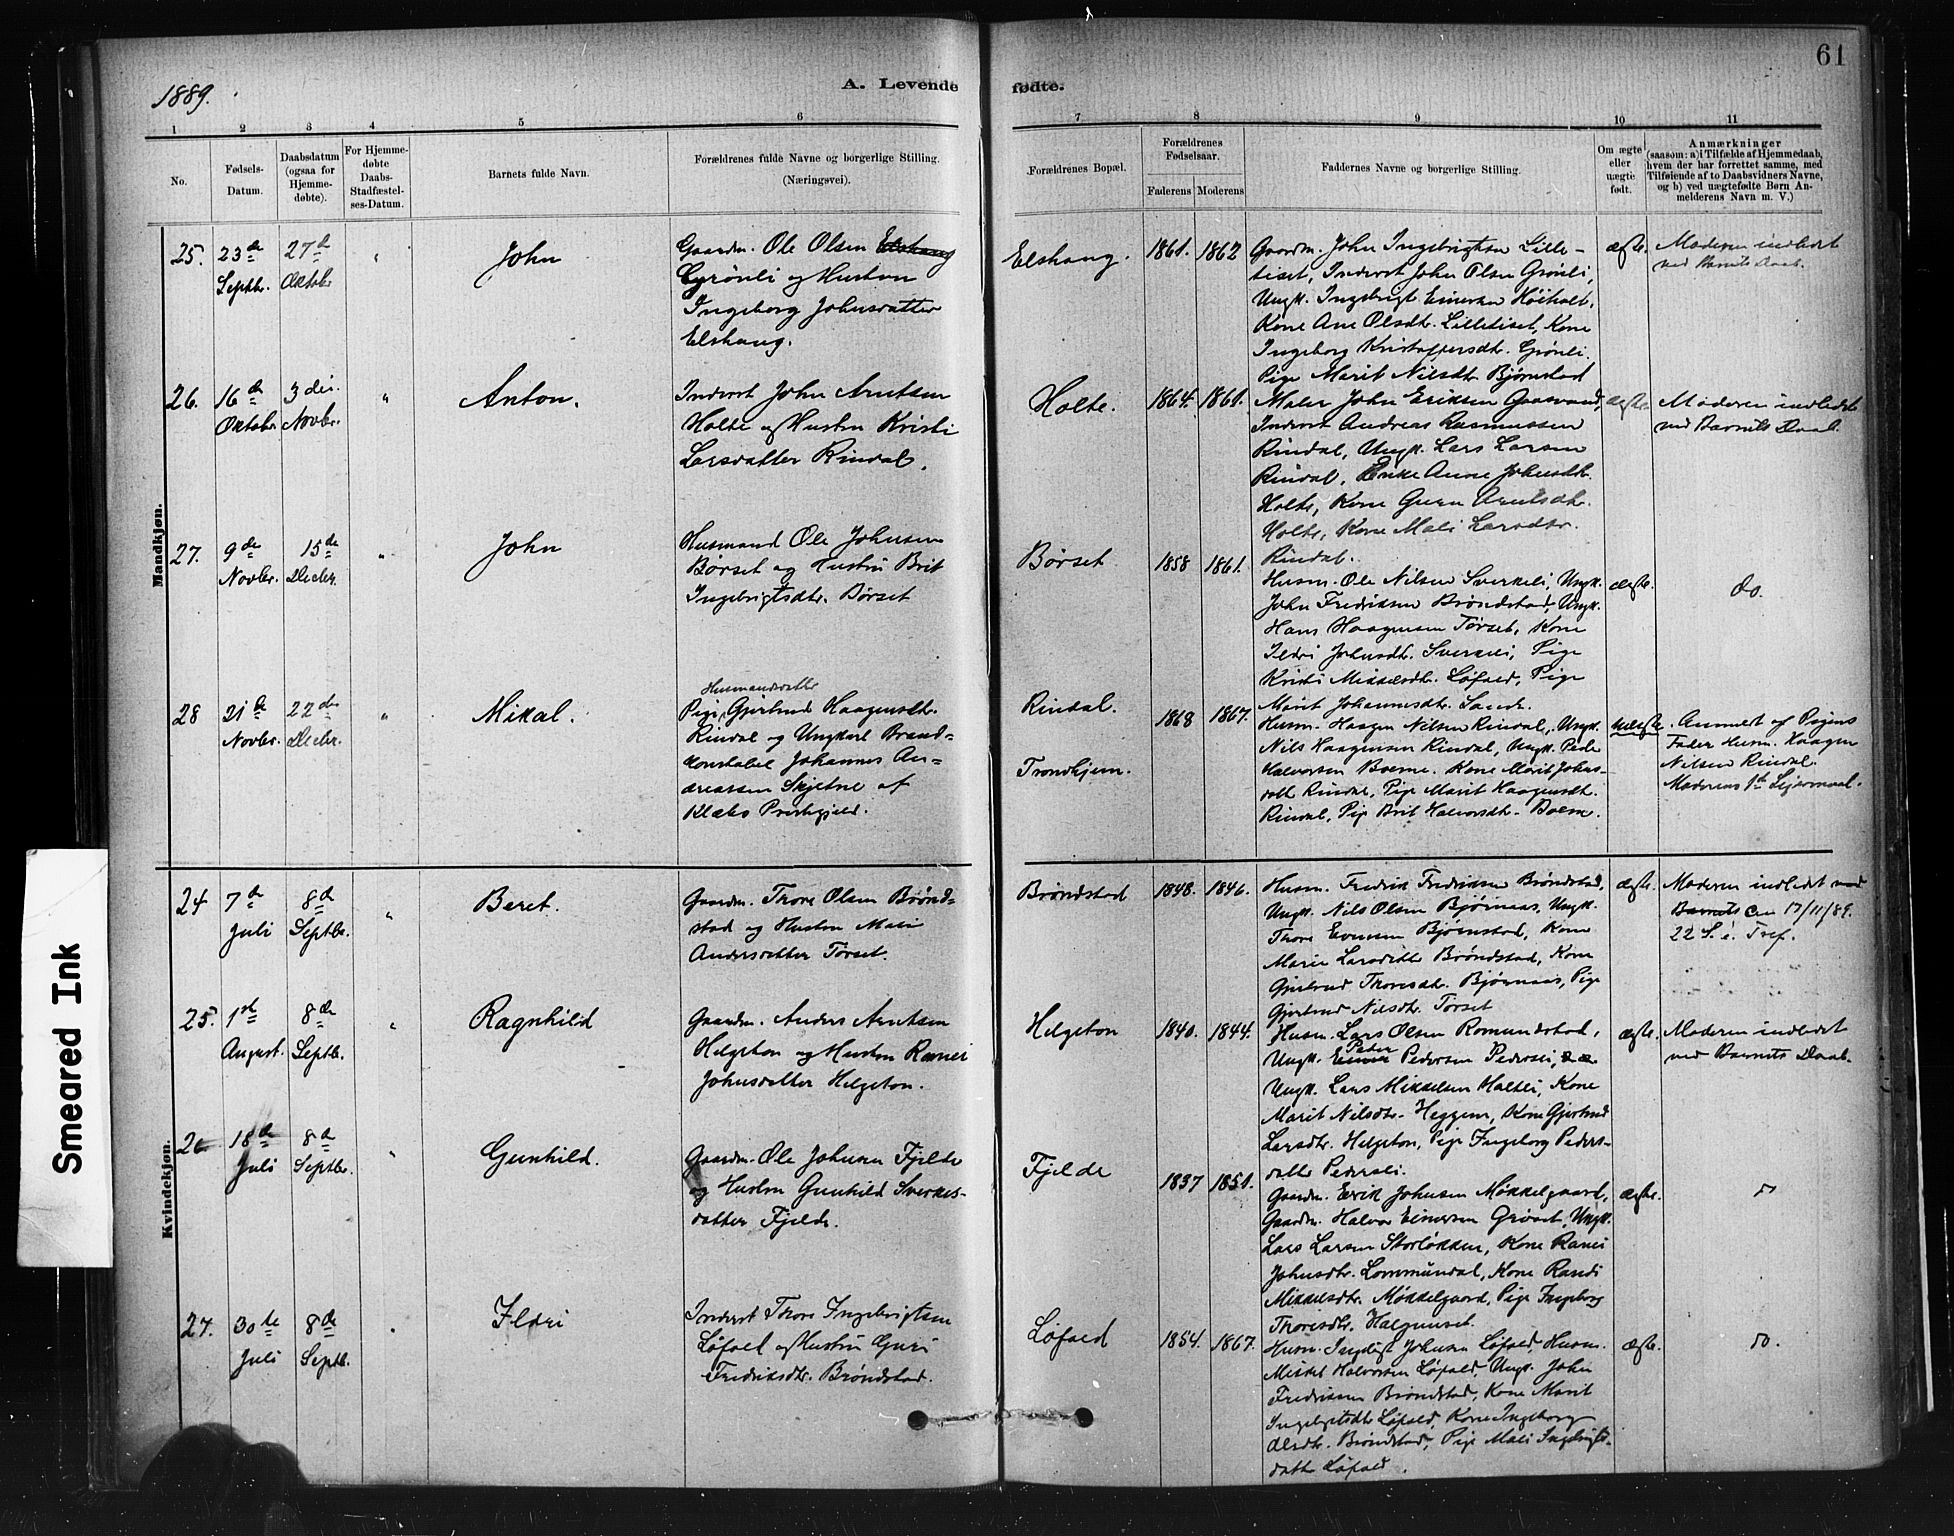 61
1889.
A. Levende
fødte.
1 2 3 4 5 6 7 8 9 10 11
No.
Fødsels-
Datum.
Daabsdatum
(ogsaa for
Hjemme-
døbte).
For Hjemme-
døbte
Daabs-
Stadfæstel-
ses-Datum.
Barnets fulde Navn.
Forældrenes fulde Navne og borgerlige Stilling.
(Næringsvei).
Forældrenes Bopæl.
Forældrenes
Fødselsaar.
Faderens Moderens
Faddernes Navne og borgerlige Stilling.
Om ægte
eller
uægte
født.
Anmærkninger
(saasom: a) i Tilfælde af Hjemmedaab,
hvem der har forrettet samme, med
Tilføiende af to Daabsvidners Navne,
og b) ved uægtefødte Børn An-
melderens Navn m. V.)
Mandkjøn.
25.
23de
Septbr.
27de
Oktobr
"
John
Gaardm. Ole Olsen Elshaug
Grönli og Hustru
Ingeborg Johnsdatter
Elshaug.
Elshaug.
1861. 1862
Gaardm. John Ingebrigtsen Lille-
tiset, Inderst John Olsen Grönli,
Ungk. Ingebrigt Einersen Höiholt,
Kone Ane Olsdtr. Lilletiset, Kone
Ingeborg Kristoffersdtr. Grönli.
Pige Marit Nilsdtr Bjørnstad
ægte.
Moderen indledet
ved Barnets Daab.
26.
16de
Oktobr
3die
Novbr.
"
Anton.
Inderst John Arntsen
Holte og Hustru Kristi
Larsdatter Rindal.
Holte.
1864. 1861.
Maler John Eriksen Gaasvand,
Inderst Andreas Rasmussen
Rindal, Ungk. Lars Larsen
Rindal, Enke Anne Johnsdtr.
Holte, Kone Guru Arntsdtr.
Holte, Kone Mali Larsdtr.
Rindal.
ægte.
Moderen indledet
ved Barnets Daab.
27.
9de
Novbr.
15de
Decbr.
"
John
Husmand Ole Johnsen
Børset og Hustru Brit
Ingebrigtsdtr. Børset
Børset
1858 1861.
Husm. Ole Nilsen Sverkeli, Ungk.
John Fredriksen Brøndstad, Ungk.
Hans Haagensen Tørset, Kone
Ildri Johnsdtr. Sverkeli, Pige
Kristi Mikkelsdtr. Løfald, Pige
Marit Johannesdtr. Sande.
ægte.
do.
28
21de
Novbr.
22de
Decbr.
"
Mikal.
Husmandsdatter
Pige, Gjertrud Haagensdtr.
Rindal og Ungkarl Brand-
konstabel Johannes An-
dreassen Skjetne af
Klæbo Prestegjeld.
Rindal.
Trondhjem.
1868 1867.
Husm. Haagen Nilsen Rindal, Ungk.
Nils Haagensen Rindal, Ungk. Peder
Halvorsen Boerne. Kone Marit Johns-
datt Rindal, Pige Marit Haagensdtr.
Rindal, Pige Brit Halvorsdtr. Boerne.
uægte.
Anmeldt af Pigens
Fader Husm. Haagen
Nilsen Rindal.
Moderens 1ste Leiermaal.
Kvindekjøn.
24
7de
Juli
8de
Septbr.
"
Beret.
Gaardm. Thore Olsen Brønd-
stad og Hustru Mali
Andersdatter Tørset.
Brøndstad
1848. 1846.
Husm. Fredrik Fredriksen Brøndstad,
Ungk. Nils Olsen Bjørnaas, Ungk.
Thore Evensen Bjørnstad, Kone
Marie Larsdtr Brøndstad, Kone
Gjertrud Thoresdtr. Bjørnaas, Pige
Gjertrud Nilsdtr. Tørset
ægte.
Moderen indledet ved
Barnets den 17/11/89.
22 S. e. Tref.
25.
1ste
August.
8de
Septbr.
"
Ragnhild
Gaardm. Anders Arntsen
Helgeton og Hustru Ranei
Johnsdatter Helgeton.
Helgeton
1840. 1844.
Husm. Lars Olsen Romundstad,
Peder
Ungk. Einar Pedersen Pedersli,
Ungk. Lars Mikkelsen Holtli, Kone
Marit Nilsdtr. Heggem, Kone Gjertrud
Larsdtr. Helgeton, Pige Ingeborg Peders-
datt Pedersli.
ægte.
Moderen indledet
ved Barnets Daab.
26
18de
Juli
8de
Septbr.
"
Gunhild.
Gaardm. Ole Johnsen Fjelde
og Hustru Gunhild Sverkes-
datter Fjelde.
Fjelde
1837 1851.
Gaardm. Erik Johnsen Møkkelgaard,
Gaardm. Halvor Einersen Grøset, Ungk.
Lars Larsen Storløkken, Kone Ranei
Johnsdtr. Lommundal, Kone Randi
Mikkelsdtr. Møkkelgaard, Pige Ingeborg
Thoresdtr. Halgunset.
ægte.
do
27.
30te
Juli
8de
Septbr.
"
Ildri
Inderst Thore Ingebrigtsen
Løfald og Hustru Guri
Fredriksdtr. Brøndstad.
Løfald
1854. 1867.
Husm. Ingebrigt Johnsen Løfald, Husm.
Mikkel Halvorsen Løfald, Ungk. John
Fredriksen Brøndstad, Kone Marit
Ingebrigtsdtr Løfald, Kone Ingeborg
Olsdtr. Brøndstad, Pige Mali Ingebrigts-
datt Løfald.
ægte.
do.
Smeared Ink